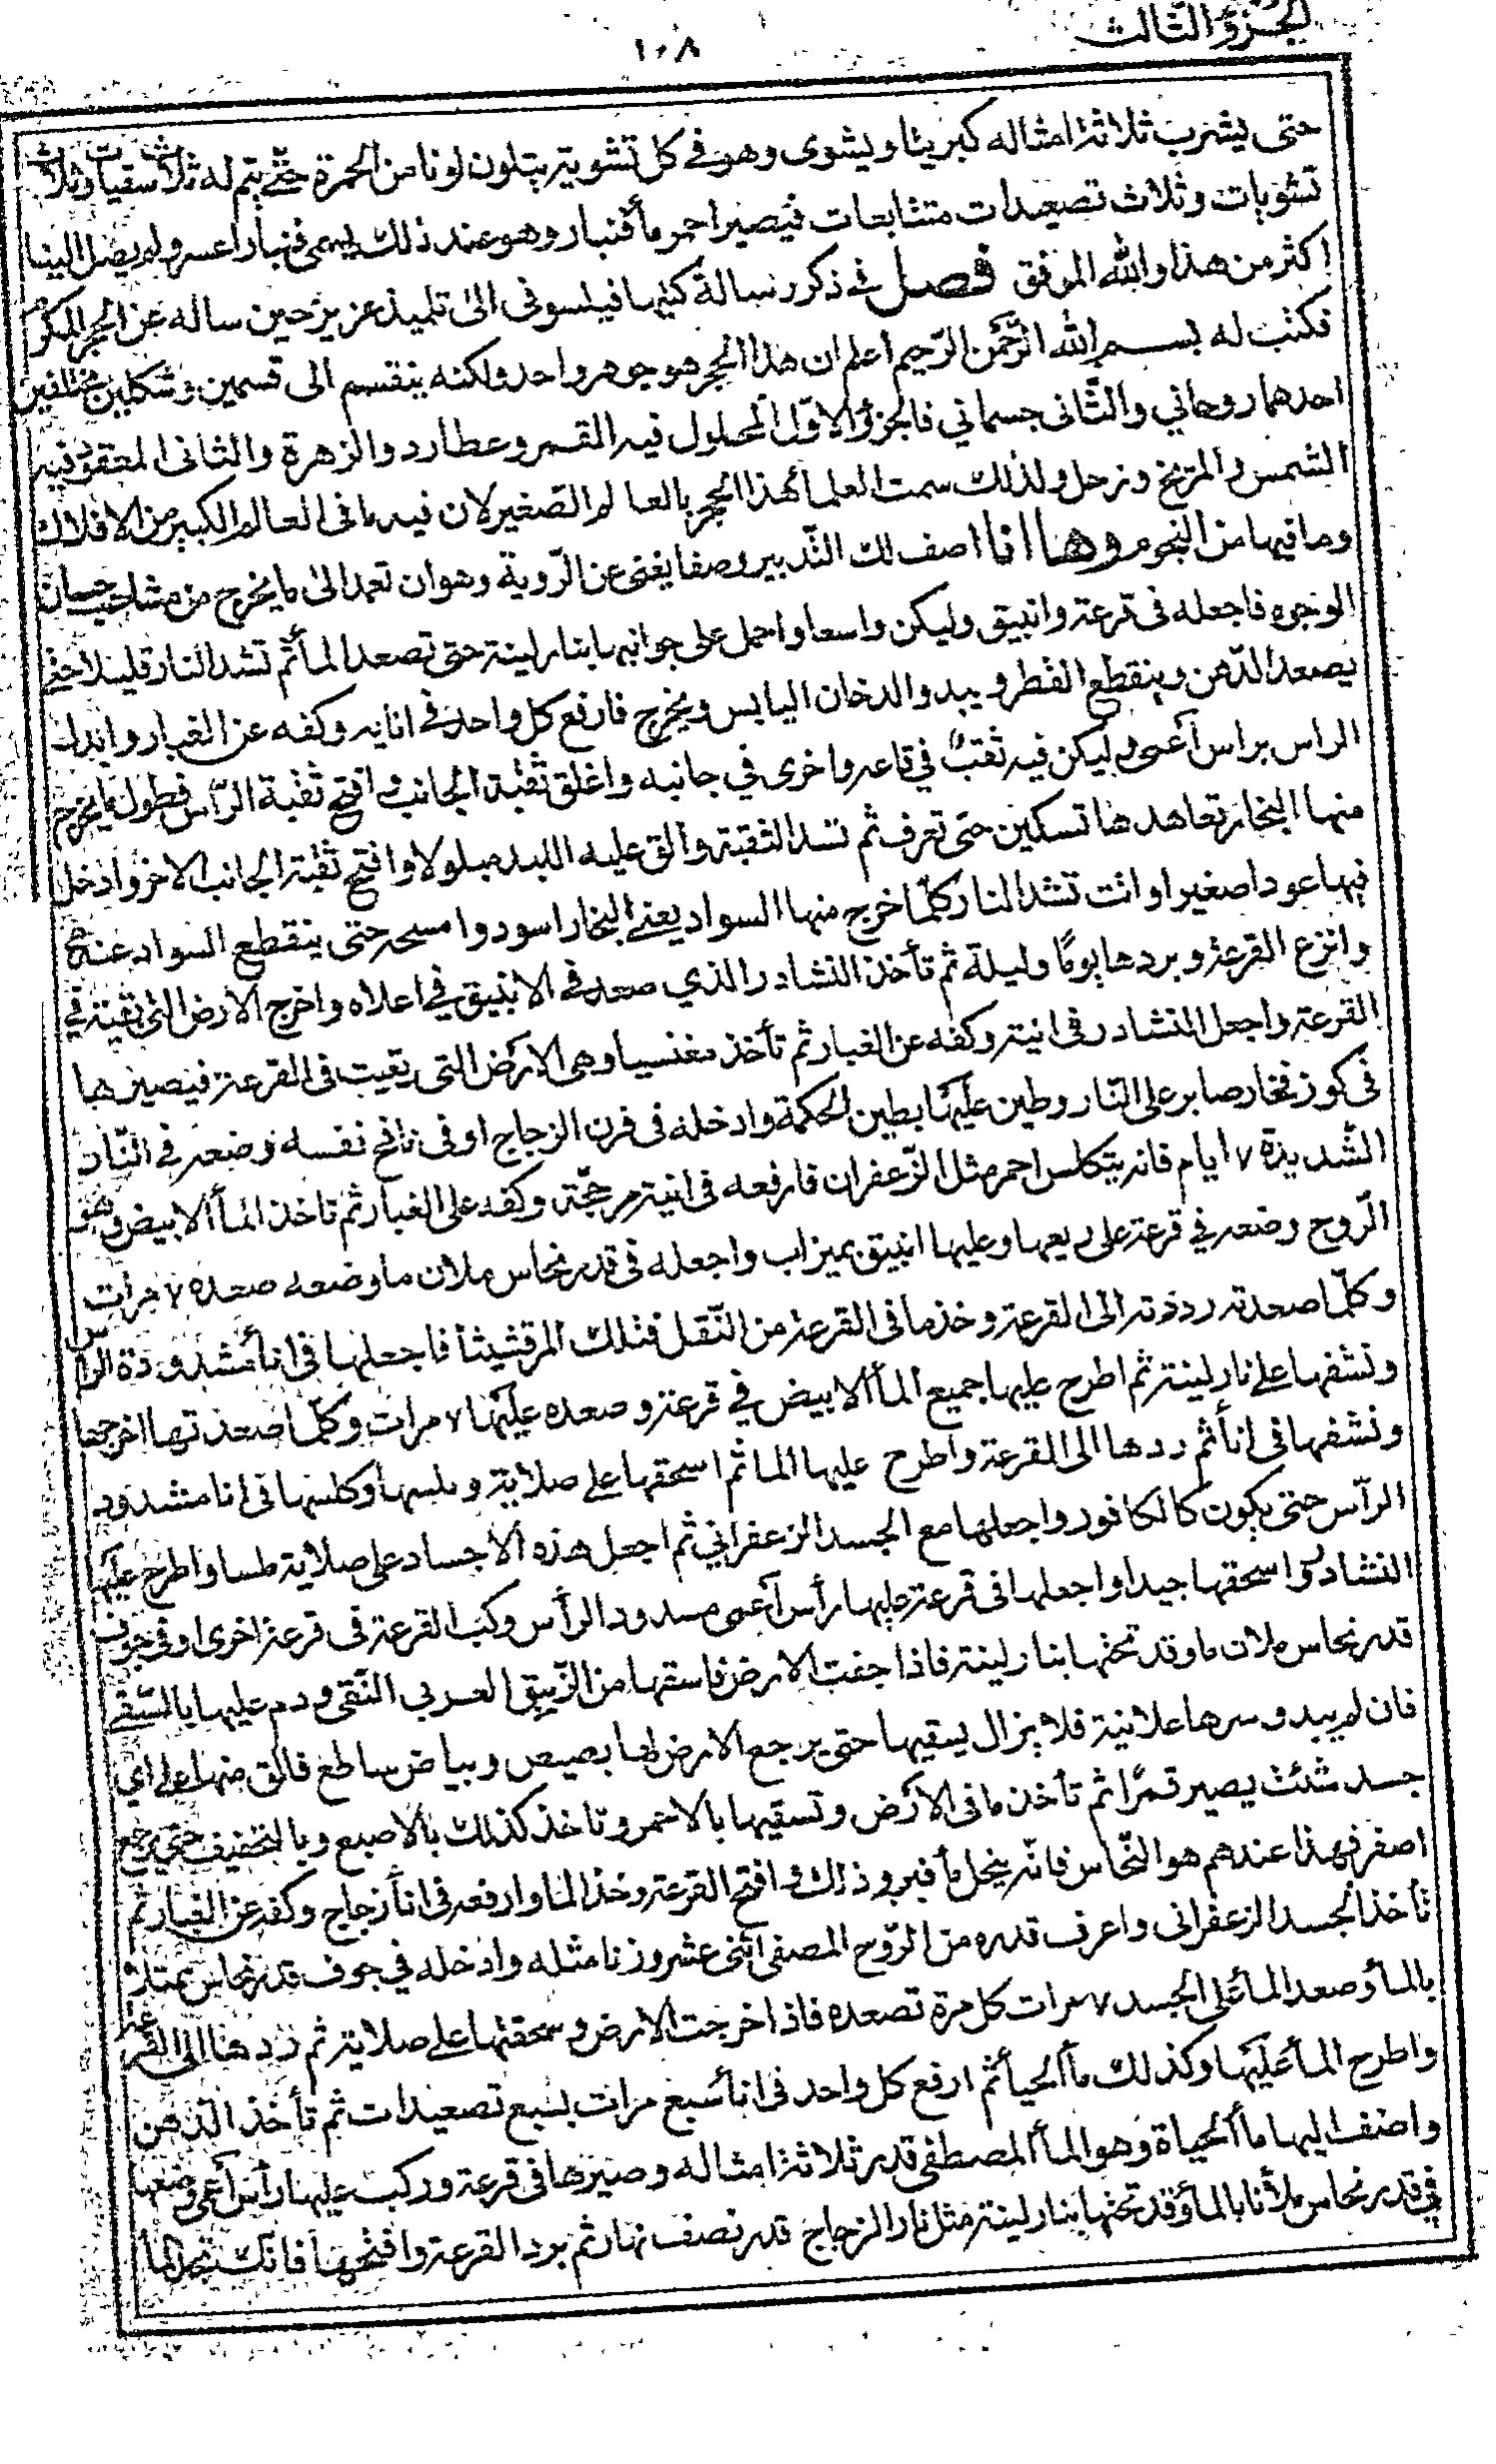 الجزؤ الثالث
١٠٨
حتى يشرب ثلاثة امثاله كبريتا ويشوى وهو في كل تشوية يتلون لونا من الحمرة حتى يتم له ثلاث سقيات وثلاث
تشويات وثلاث تصعيدات متتابعات فيصير احمر مأ فنبار وهو عند ذلك يسمى فنبارا عسر ولم يصل الينا
اكثر من هذا والله الموفق فصل في ذكر رسالة كتبها فيلسوف الى تلميذ عزيز حين ساله عن الحجر المكرم
فكتب له بسم الله الرحمن الرحيم اعلم ان هذا الحجر هو جوهر واحد ولكنه ينقسم الى قسمين وشكلين مختلفين
احدهما روحاني والثانى جسماني فالجزؤ الاول المحلول فيه القمر وعطارد والزهرة والثانى المعقود فيه
الشمس والمريخ وزحل ولذلك سمت العلمأ هذا الحجر بالعالم الصغير لان فيه ما فى العالم الكبير من الافلاك
وما فيها من النجوم وها انا اصف لك التدبير وصفا يغنى عن الروية وهو ان تعمد الى ما يخرج من مشا حسان
الوجوه فاجعله فى قرعة وانبيق وليكن واسعا واحمل على جوانبها بنار لينة حتى تصعد المأ ثم تشد النار قليلا حتى
يصعد الدهن وينقطع القطر ويبدو الدخان اليابس ويخرج فارفع كل واحد فى انايه وكفه عن الغبار وابدل
الراس براس أعمى وليكن فيه ثقب في قاعه واخرى في جانبه واغلق ثقبة الجانب وافتح ثقبة الرأس فطول ما يخرج
منها البخار تعاهدها تسكين حتى تعرف ثم تشد الثقبة والق عليه اللبد مبلولا وافتح ثقبة الجانب الاخر وادخل
فيها عودا صغيرا وانت تشد النار كلما خرج منها السواد يعنى البخار اسود وامسحه حتى ينقطع السواد عنه
وانزع القرعة وبردها يومًا وليلة ثم تأخذ النشادر الذي صعد فى الانبيق في اعلاه واخرج الارض التى بقيت في
القرعة واجعل النشادر فى انية وكفه عن الغبار ثم تأخذ مغنسيا وهى الارض التى بقيت فى القرعة فيصيرها
فى كوز فخار صابر على النار وطين عليها بطين الحكمة وادخله فى فرن الزجاج او فى نافخ نفسه وضعه فى النار
الشديدة ٧ ايام فانه يتكلس احمر مثل الزعفران فارفعه فى انية مرججة وكفه على الغبار ثم تاخذ المأ الابيض وهو
الروح وضعه في قرعة على ربعها وعليها انبيق بميزاب واجعله فى قدر نحاس ملان ما وضعه صعده ٧ مرات
وكلما صعدته رددته الى القرعة وخذ ما فى القرعة من الثقل فتلك المرقشيثا فاجعلها فى انا مشدودة الراس
ونشفها على نار لينة ثم اطرح عليها جميع المأ الابيض في قرعة وصعده عليها ٧ مرات وكلما صعدتها اخرجها
ونشفها فى انأ ثم ردها الى القرعة واطرح عليها الما ثم اسحقها على صلاية وكلسها فى انا مشدود
الرأس حتى يكون كالكافور واجعلها مع الجسد الزعفراني ثم اجعل هذه الاجساد على صلاية طسا واطرح عليها
النشادر واسحقها جيدا واجعلها فى قرعة عليها رأس أعمى مسدود الرأس وكب القرعة فى قرعة اخرى او فى جوف
قدر نحاس ملان ما وقد تحتها بنار لينة فاذا جفت الارض فاسقها من الزيبق العربي النقى ودم عليها بالسقى
فان لم يبدو سرها علانية فلا يزال يسقيها حتى يرجع الارض لها بصيص وبياض ساطع فالق منها على اي
جسد شئت يصير قمرًا ثم تأخذ ما فى الارض وتسقيها بالاحمر وتاخذ كذلك بالاصبع وبالتخفيف حتى يرجع
اصفر فهذا عندهم هو النحاس فانه ينحل وذلك وافتح القرعة وخذ الما وارفعه فى انأ زجاج وكفه عن الغبار ثم
تأخذ الجسد الزعفرانى واعرف قدره من الروح المصفى اثنى عشر وزنا مثله وادخله في جوف قدر نحاس ممتلئة
بالمأ وصعد المأ على الجسد ٧ مرات كل مرة تصعده فاذا خرجت الارض وسحقتها على صلاية ثم ردها الى القرعة
واطرح المأ عليها وكذلك مأ الحيأ ثم ارفع كل واحد فى انأ سبع مرات بسبع تصعيدات ثم تأخذ الدهن
واضف اليها مأ الحياة وهو المأ المصطفى قدر ثلاثة امثاله وصيرها فى قرعة وركب عليها رأس أعمى وضعها
في قدر نحاس ملأنا بالمأ وقد تحتها بنار لينة مثل نار الزجاج قدر نصف نهار ثم برد القرعة وافتحها فانك المأ